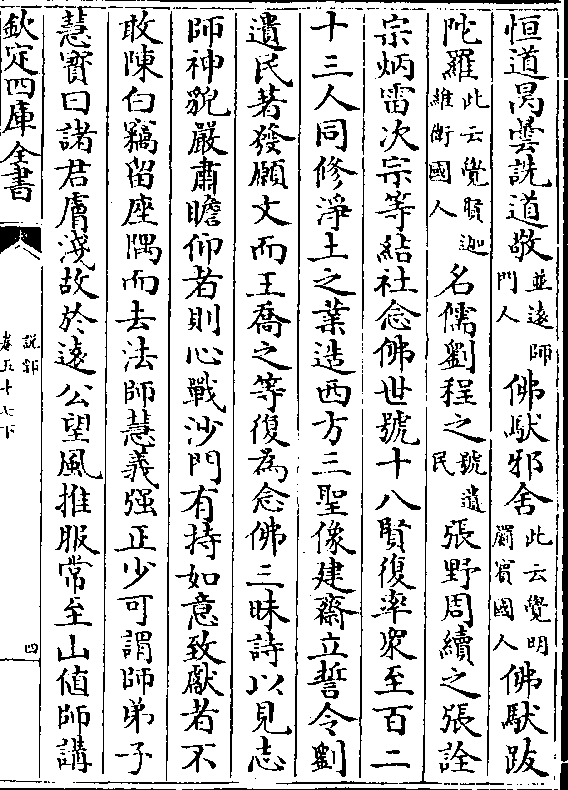 恒道昺曇詵道敬並遠師門人佛馱邪舍此云覺明罽賓國人佛馱跋
陀羅此云覺賢迦維衛國人名儒劉程之號遺民張野周續之張詮
宗炳雷次宗等結社念佛世號十八賢復率衆至百二
十三人同修淨土之業造西方三聖像建齋立誓令劉
遺民著發願文而王喬之等復為念佛三昧詩以見志
師神貌嚴肅瞻仰者則心戰沙門有持如意致獻者不
敢陳白竊留座隅而去法師慧義强正少可謂師弟子
慧寳曰諸君膚淺故於遠公望風推服常至山值師講
欽定四庫全書
說郛
卷五十七下
四